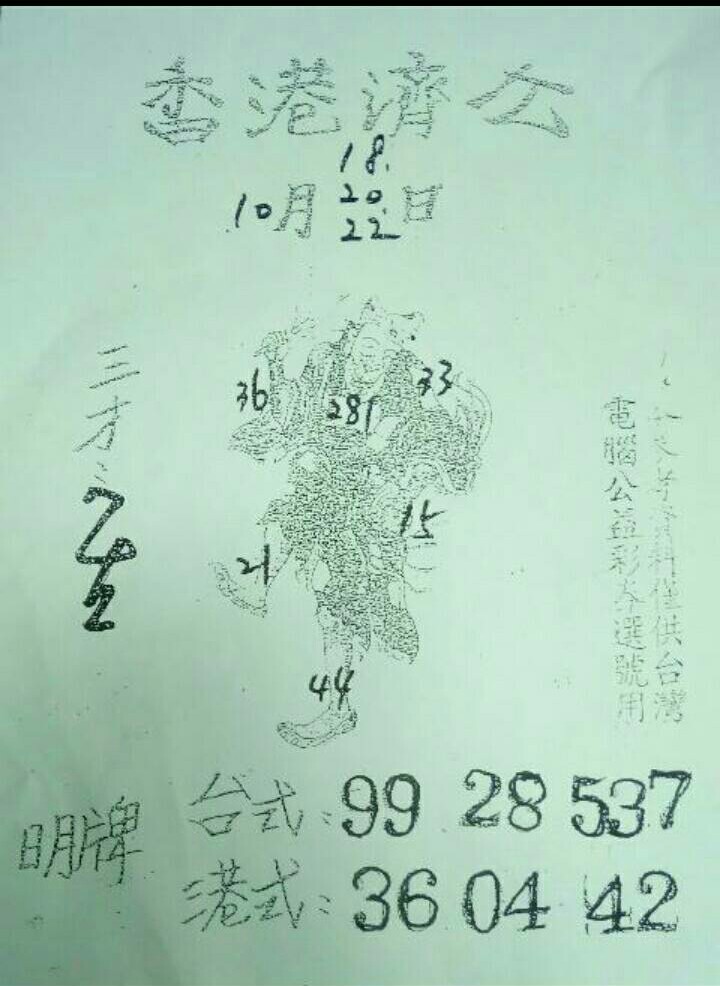 香港濟公
10月 18. 20 22 日
36
33
281
15
21
44
三才:
資料僅供台灣
電腦公益彩券選號用
明牌
台式:99 28 537
港式:36 04 42